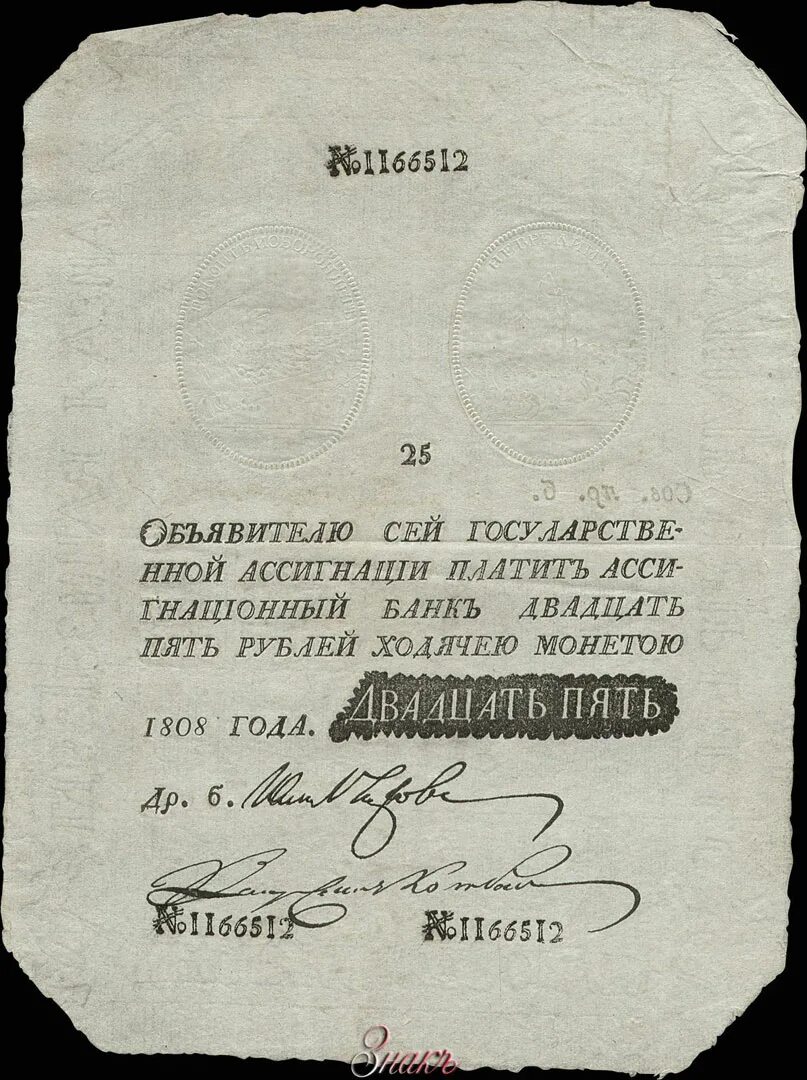 № 1166512
ПОКОИТЪ И ОБОРОНЯЕТЪ
НЕВРЕДИМА
25
Сов. пр. б.
ОБЪЯВИТЕЛЮ СЕЙ ГОСУДАРСТВЕ-
ННОЙ АССИГНАЦІИ ПЛАТИТЪ АССИ-
ГНАЦІОННЫЙ БАНКЪ ДВАДЦАТЬ
ПЯТЬ РУБЛЕЙ ХОДЯЧЕЮ МОНЕТОЮ
1808 ГОДА. ДВАДЦАТЬ ПЯТЬ
Др. б.
№ 1166512 № 1166512
Знакъ